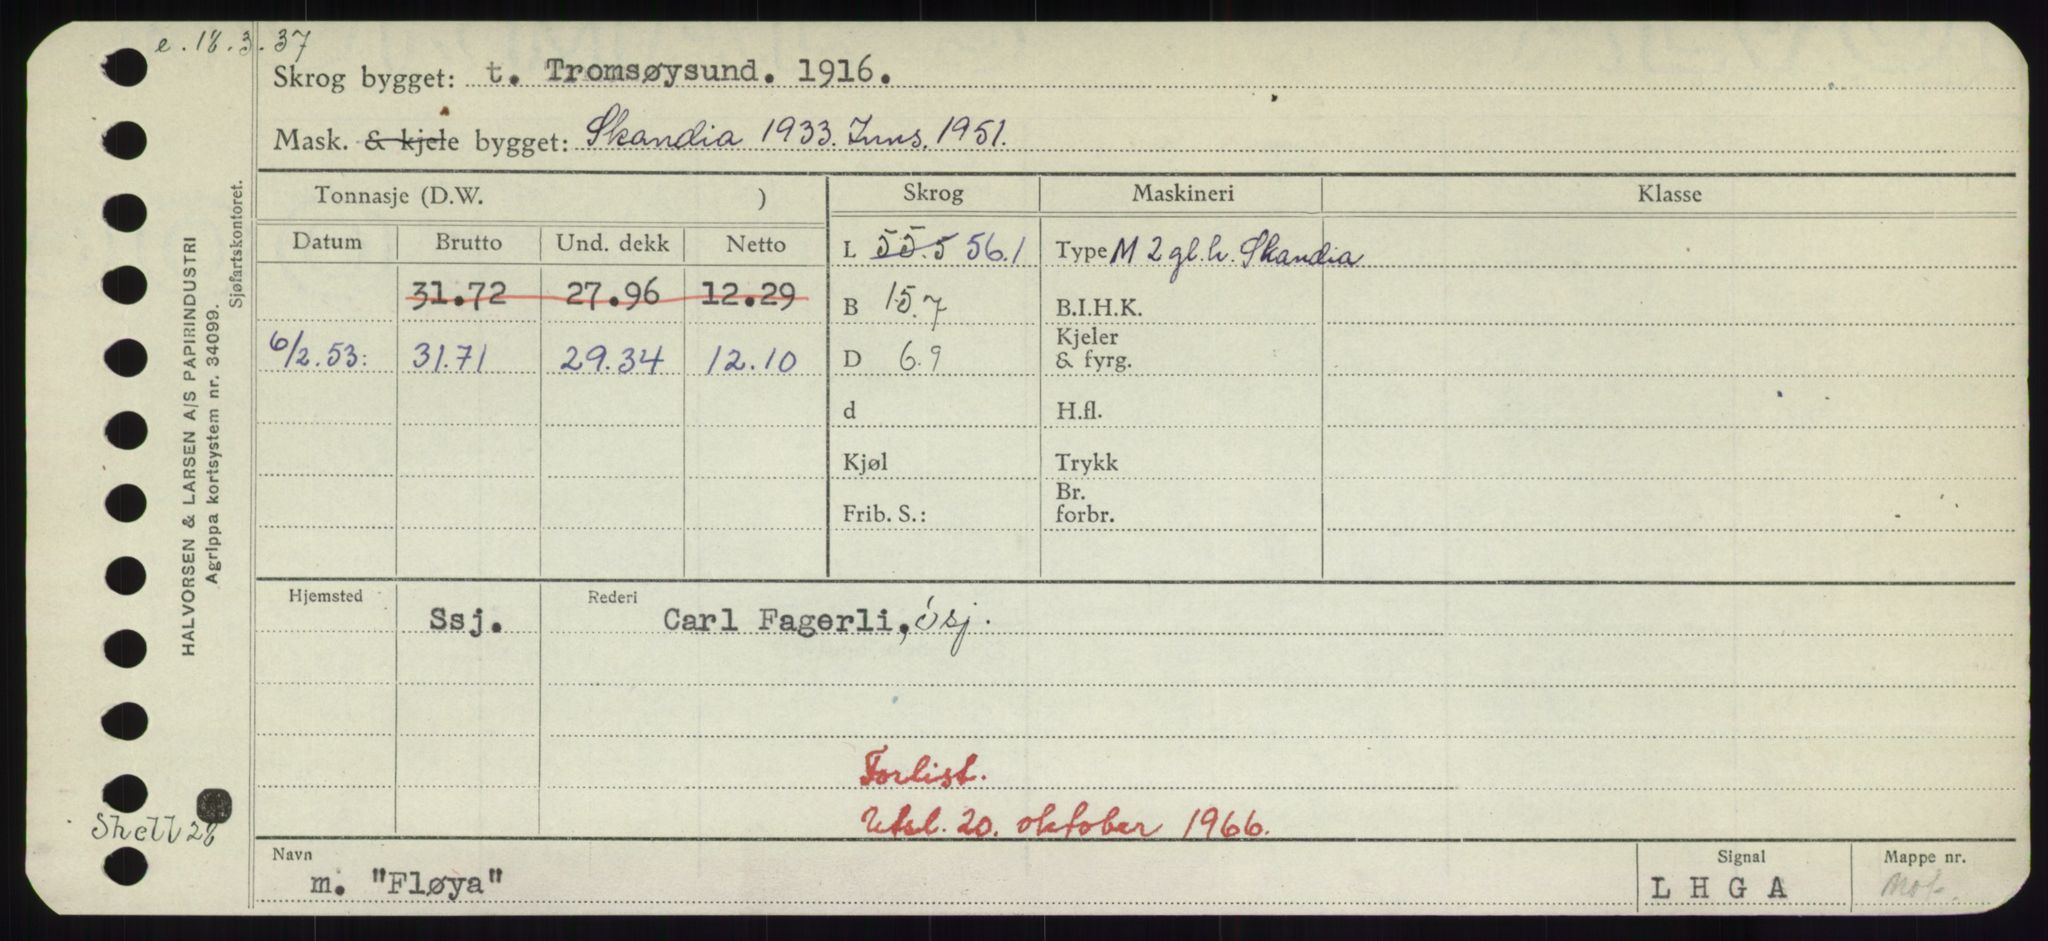 e. 18.3.37
Skrog bygget: t. Tromsøysund. 1916.
Mask. & kjele bygget: Skandia 1933. Inns. 1951.
Tonnasje (D.W. ) Skrog Maskineri Klasse
Datum Brutto Und. dekk Netto
L 55.5 56.1 Type M 2 gl.h. Skandia
31.72 27.96 12.29
B 15.7 B.I.H.K.
6/2.53: 31.71 29.34 12.10
D 6.9 Kjeler & fyrg.
d H.fl.
Kjøl Trykk
Frib. S.: Br. forbr.
Hjemsted Ssj. Rederi Carl Fagerli, Ssj.
Forlist.
Utsl. 20. oktober 1966.
Navn Signal Mappe nr.
m. "Fløya" LHGA Mot.
HALVORSEN & LARSEN A/S PAPIRINDUSTRI
Agrippa kortsystem nr. 34099.
Sjøfartskontoret.
Shell 28